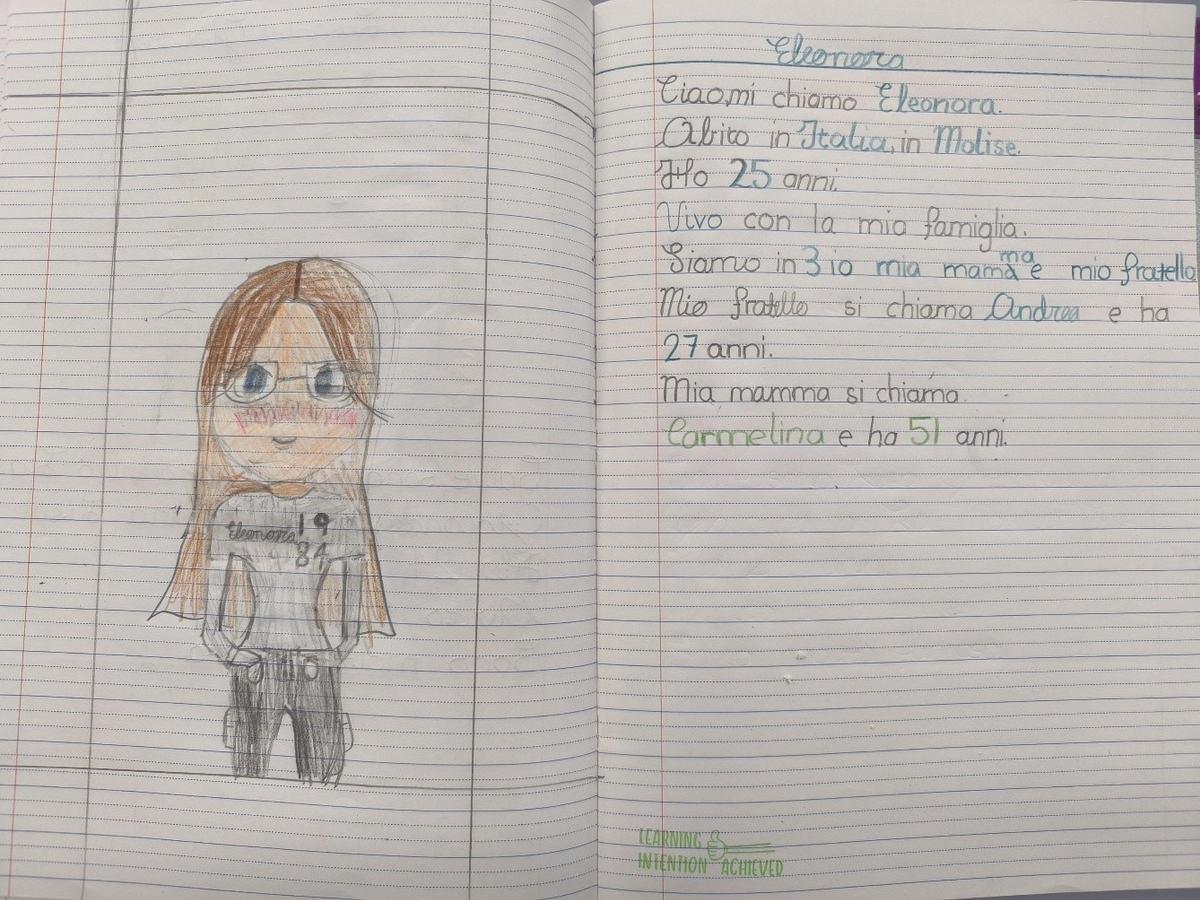 Eleonora 19
84
Eleonora
Ciao, mi chiamo Eleonora.
Abito in Italia, in Molise.
Ho 25 anni.
Vivo con la mia famiglia.
Siamo in 3 io mia mamma e mio fratello
Mio fratello si chiama Andrea e ha
27 anni.
Mia mamma si chiama
Carmelina e ha 51 anni.
LEARNING
INTENTION ACHIEVED